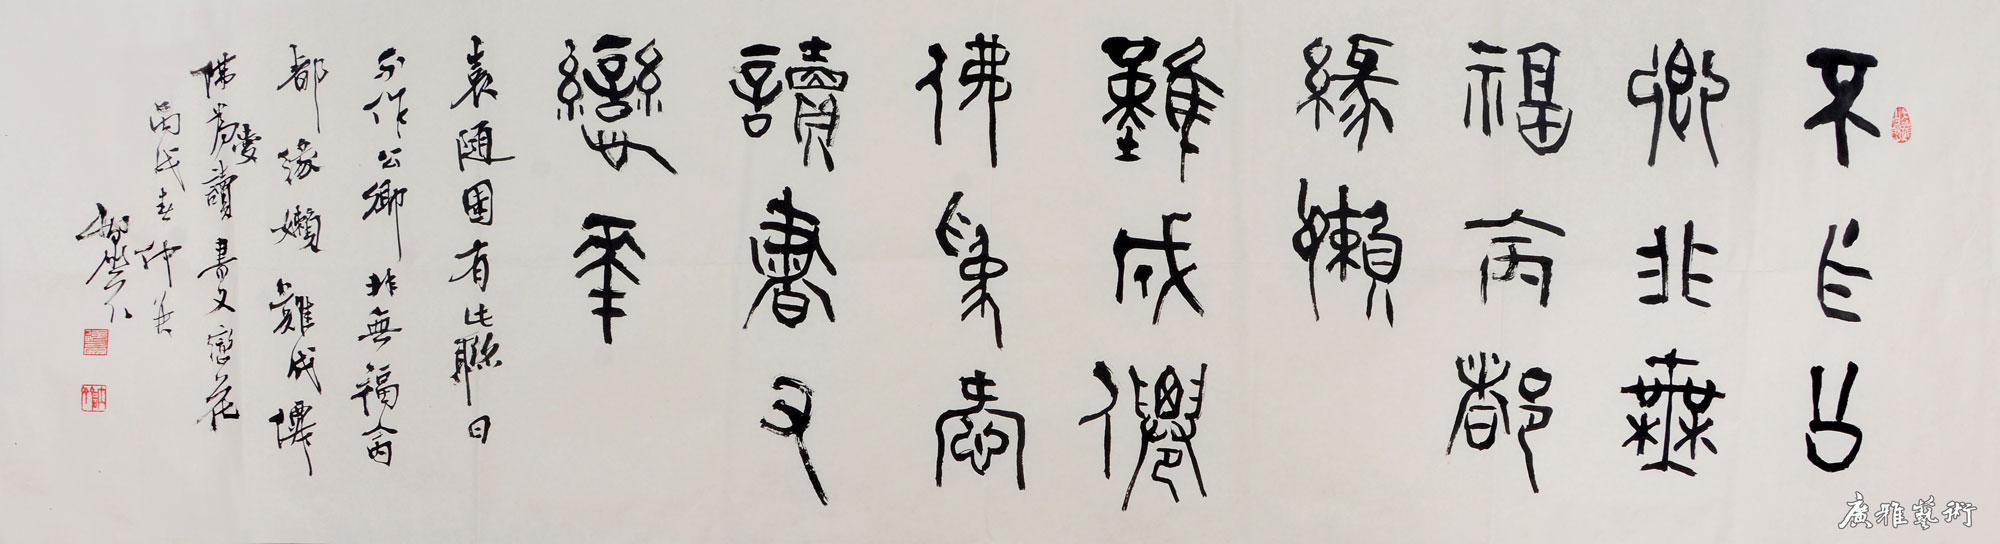 不作公
卿非無
福命都
緣嬾
難成僊
佛為愛
讀書又
戀華
袁随園有此聯曰
不作公卿非無福命
都緣嬾難成僊
佛為愛讀書又戀花
戌春仲
廣雅藝術